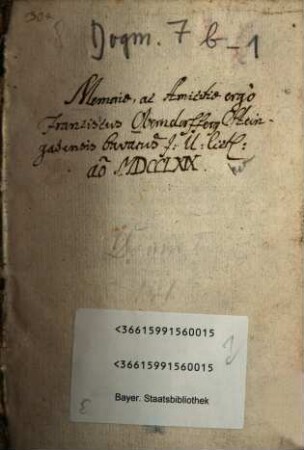 Dogm. 7 b-1
Memoriæ, ac Amicitiæ ergò
Franciscus Oberndorffer
Bavarus J: U:
aõ MDCCLXX.
<36615991560015
<36615991560015
Bayer. Staatsbibliothek